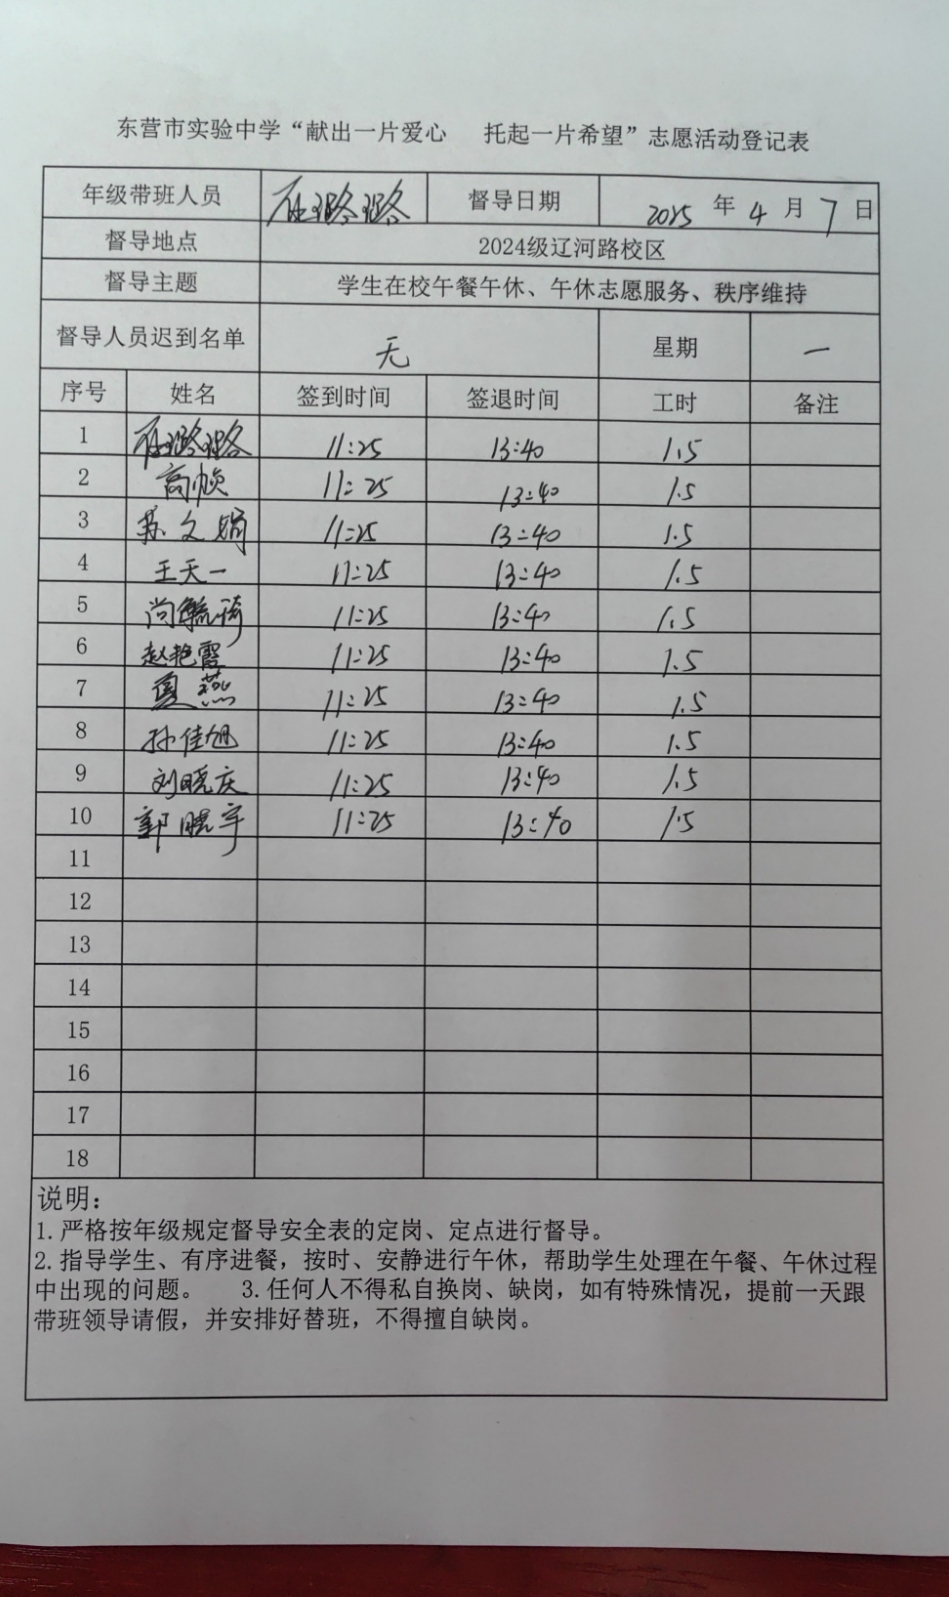 东营市实验中学“献出一片爱心 托起一片希望”志愿活动登记表
年级带班人员 路路 督导日期 2025 年 4 月 7 日
督导地点 2024级辽河路校区
督导主题 学生在校午餐午休、午休志愿服务、秩序维持
督导人员迟到名单 无 星期 一
序号 姓名 签到时间 签退时间 工时 备注
1 路路 11:25 13:40 1.5
2 高帧 11:25 13:40 1.5
3 苏文娟 11:25 13:40 1.5
4 王天一 11:25 13:40 1.5
5 尚毓琦 11:25 13:40 1.5
6 赵艳霞 11:25 13:40 1.5
7 夏燕 11:25 13:40 1.5
8 孙佳旭 11:25 13:40 1.5
9 刘晓庆 11:25 13:40 1.5
10 郭晓宇 11:25 13:40 1.5
11
12
13
14
15
16
17
18
说明：
1.严格按年级规定督导安全表的定岗、定点进行督导。
2.指导学生、有序进餐，按时、安静进行午休，帮助学生处理在午餐、午休过程
中出现的问题。 3.任何人不得私自换岗、缺岗，如有特殊情况，提前一天跟
带班领导请假，并安排好替班，不得擅自缺岗。